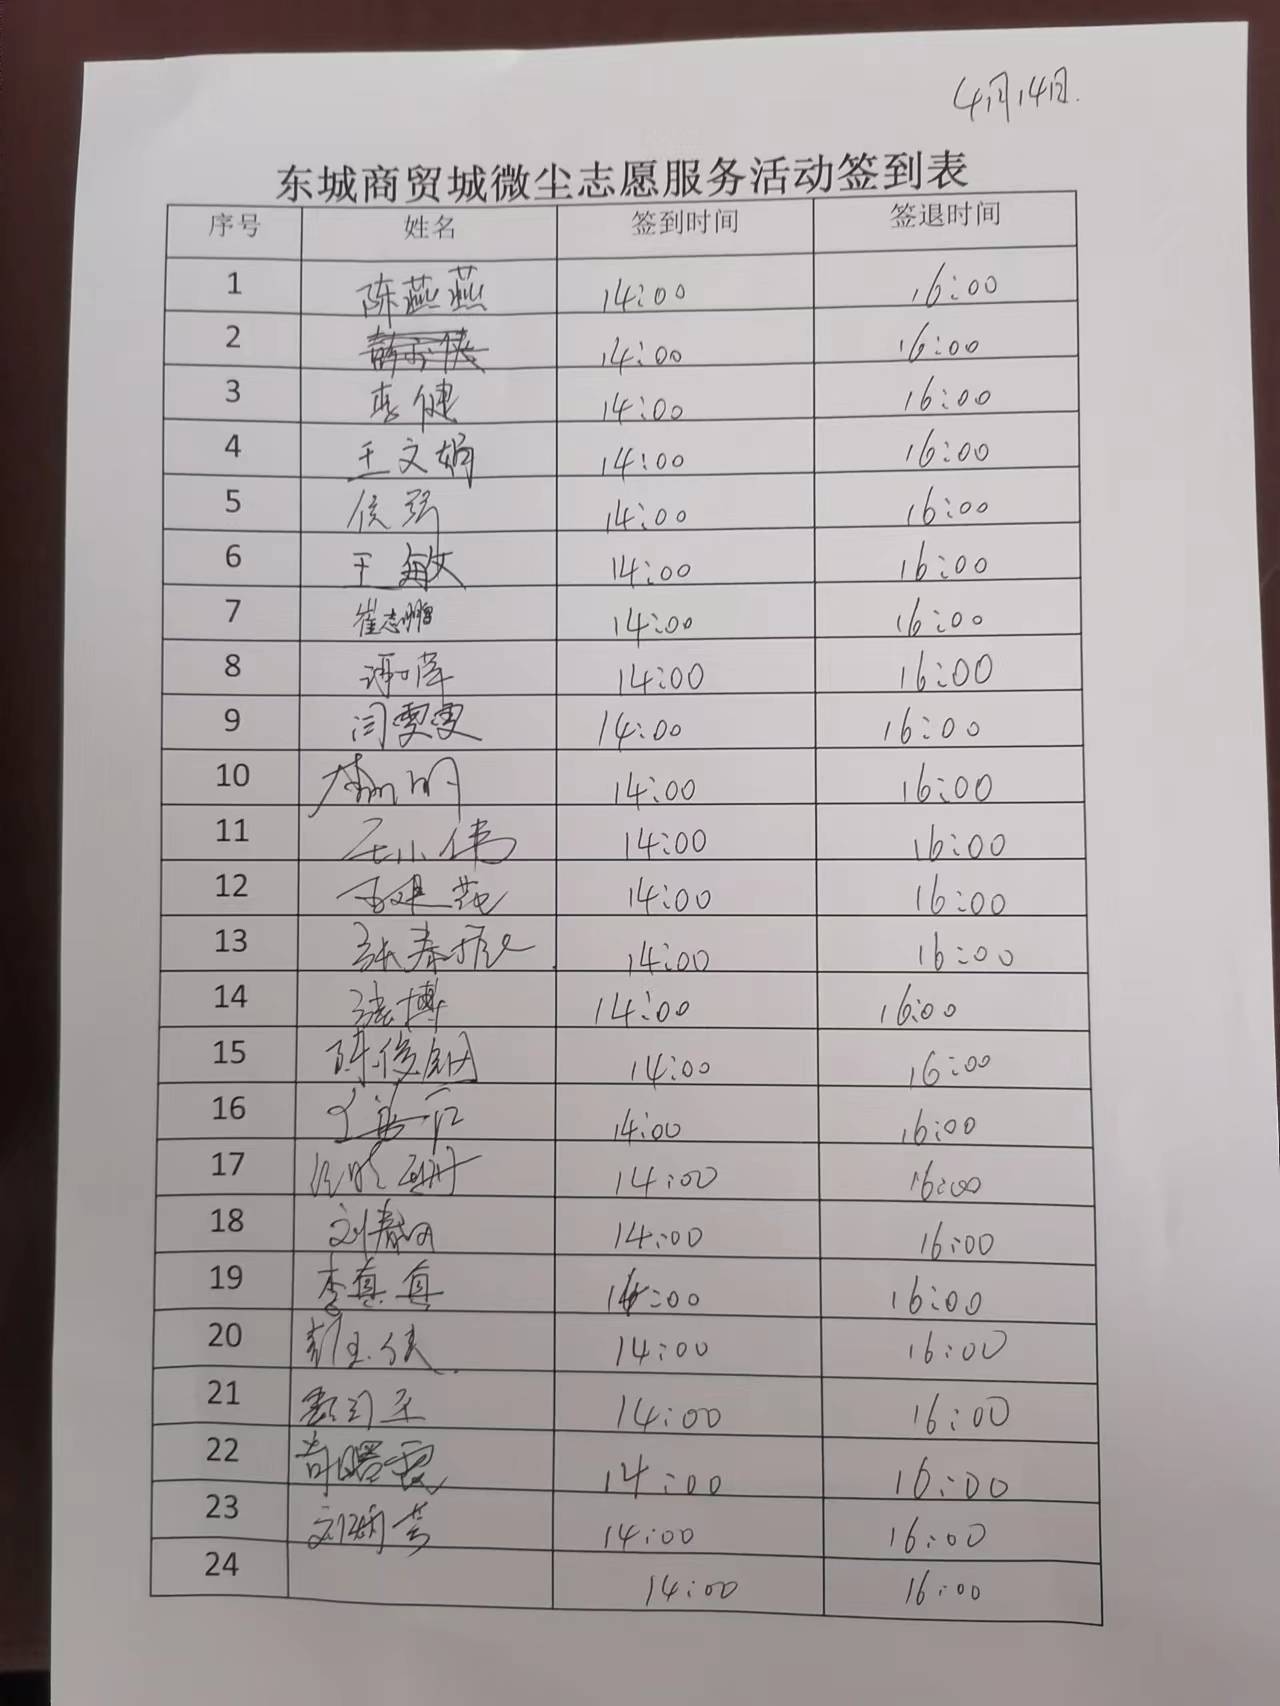 4月14日.
东城商贸城微尘志愿服务活动签到表
序号 姓名 签到时间 签退时间
1 陈燕燕 14:00 16:00
2 14:00 16:00
3 李健 14:00 16:00
4 王文娟 14:00 16:00
5 侯强 14:00 16:00
6 王敏 14:00 16:00
7 崔志鹏 14:00 16:00
8 14:00 16:00
9 闫雯雯 14:00 16:00
10 14:00 16:00
11 王小伟 14:00 16:00
12 14:00 16:00
13 14:00 16:00
14 张博 14:00 16:00
15 14:00 16:00
16 14:00 16:00
17 14:00 16:00
18 14:00 16:00
19 李真真 14:00 16:00
20 14:00 16:00
21 14:00 16:00
22 14:00 16:00
23 14:00 16:00
24 14:00 16:00